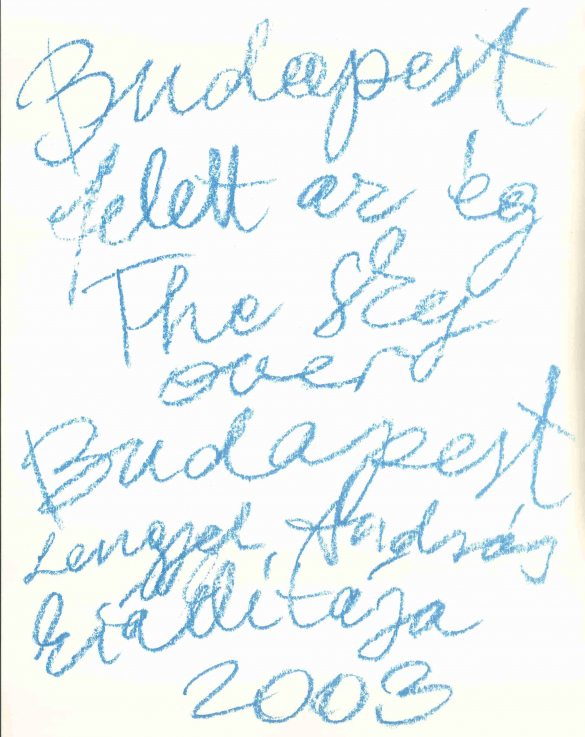 Budapest
felett az ég
The Sky
over
Budapest
Lengyel András
kiállítása
2003